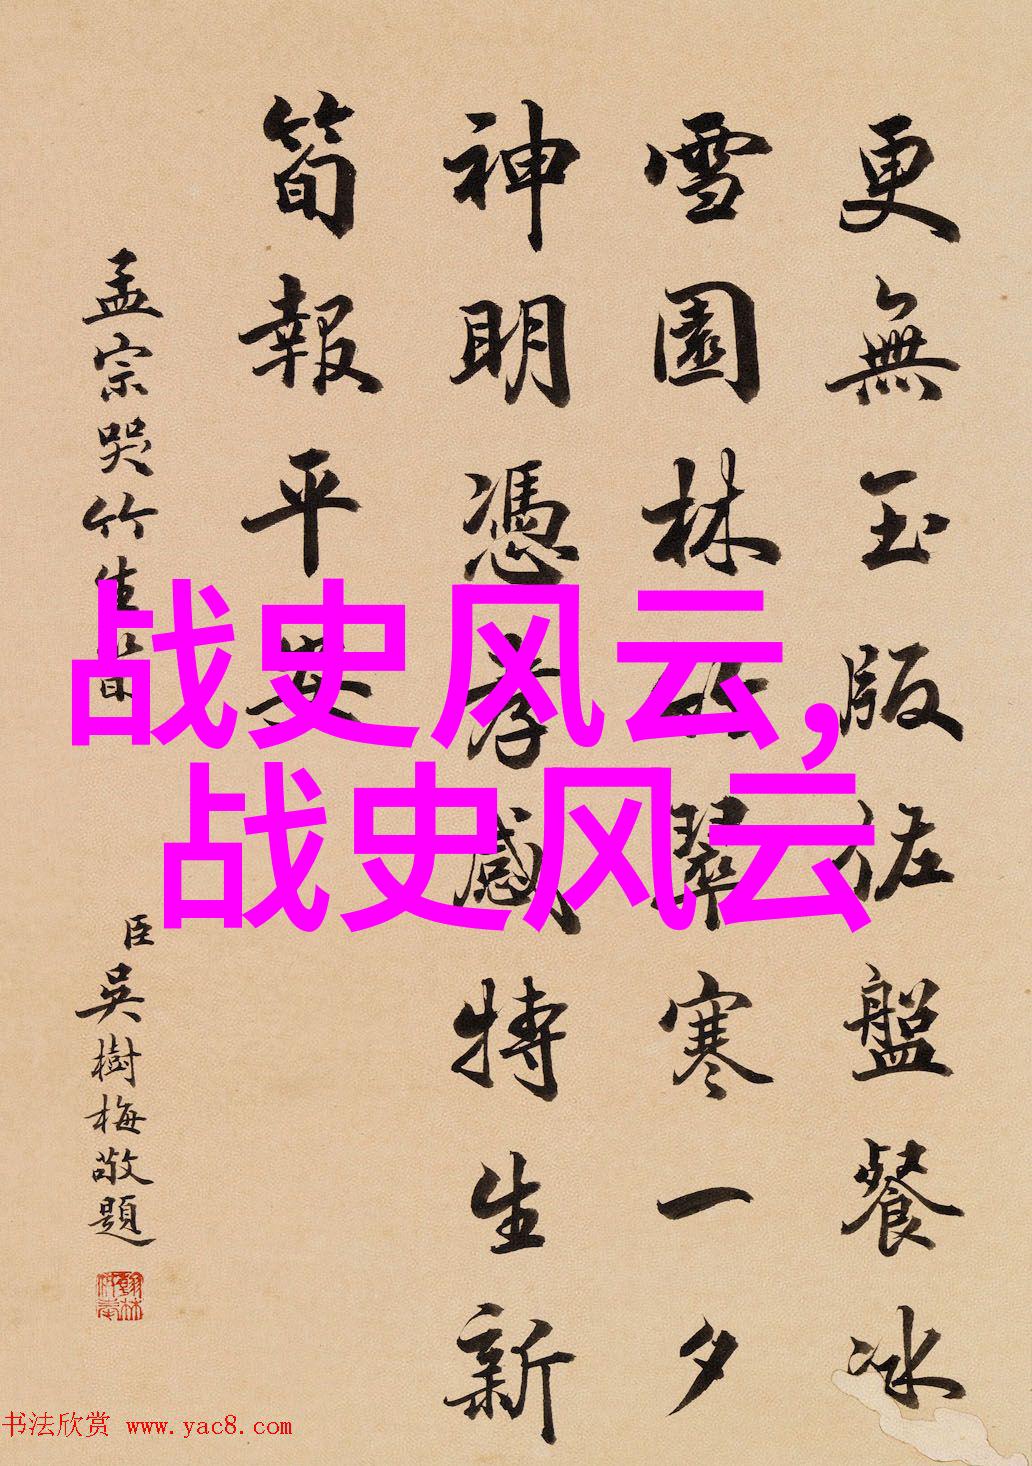 更無玉版佐盤餐冰
雪園林竹翠寒一夕
神明憑孝感特生新
筍報平安
孟宗哭竹生筍
臣吳樹梅敬題
战史风云,
战史风云
书法欣赏 www.yac8.com